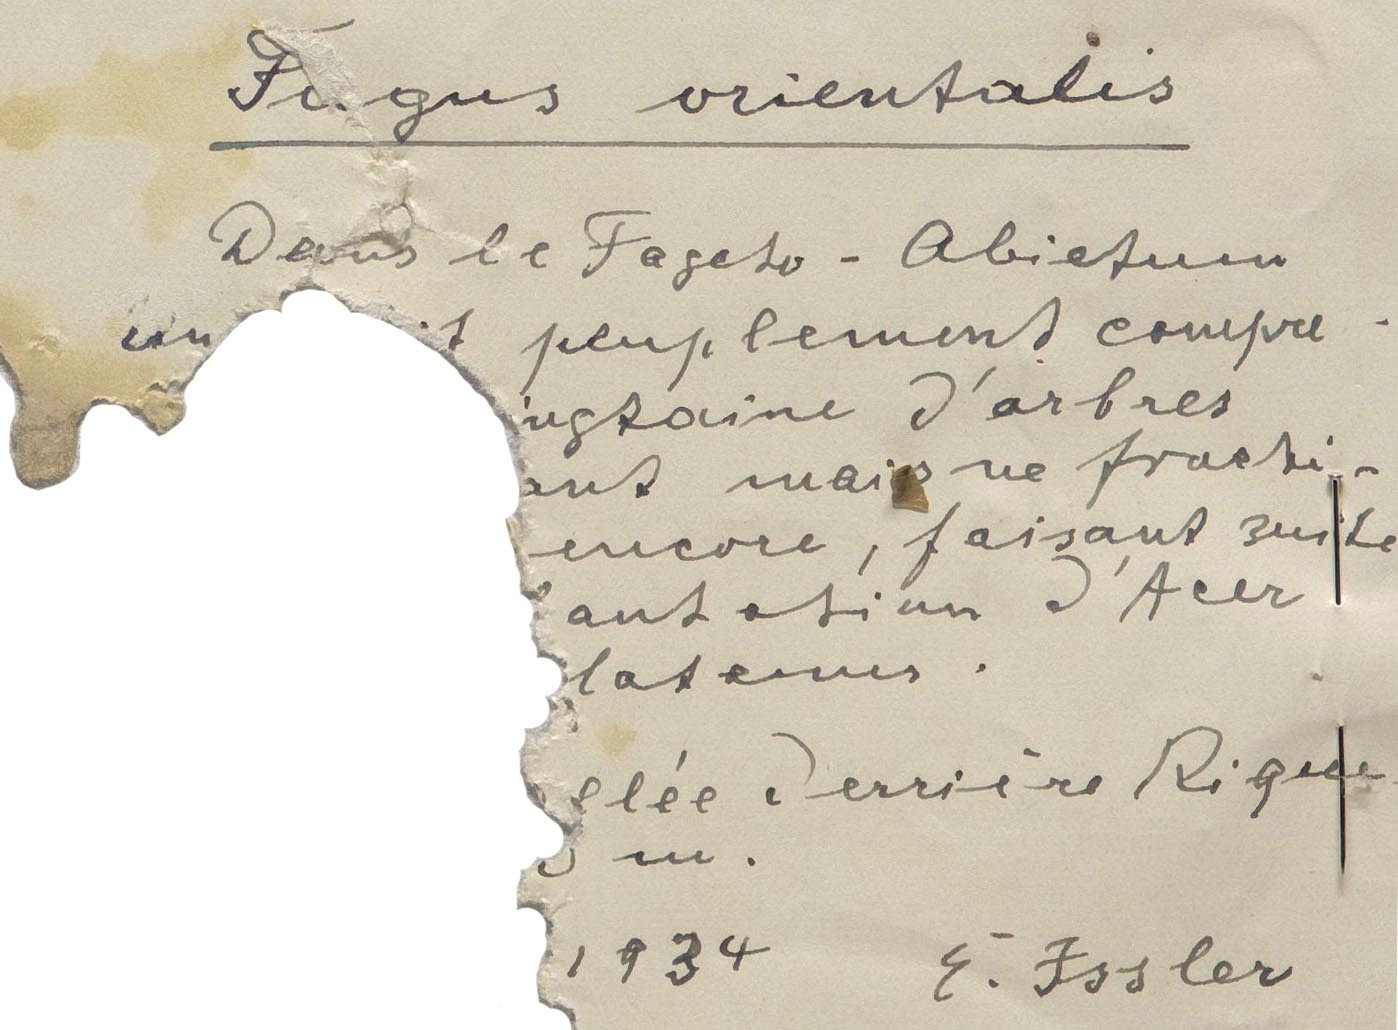 Fagus orientalis
Dans le Fageto - Abietum
un peuplement compre -
ingtaine d'arbres
ant mais ne fructi -
encore, faisant suite
lantation d'Acer
latanus.
elée derrière Rique
m.
1934 E. Issler